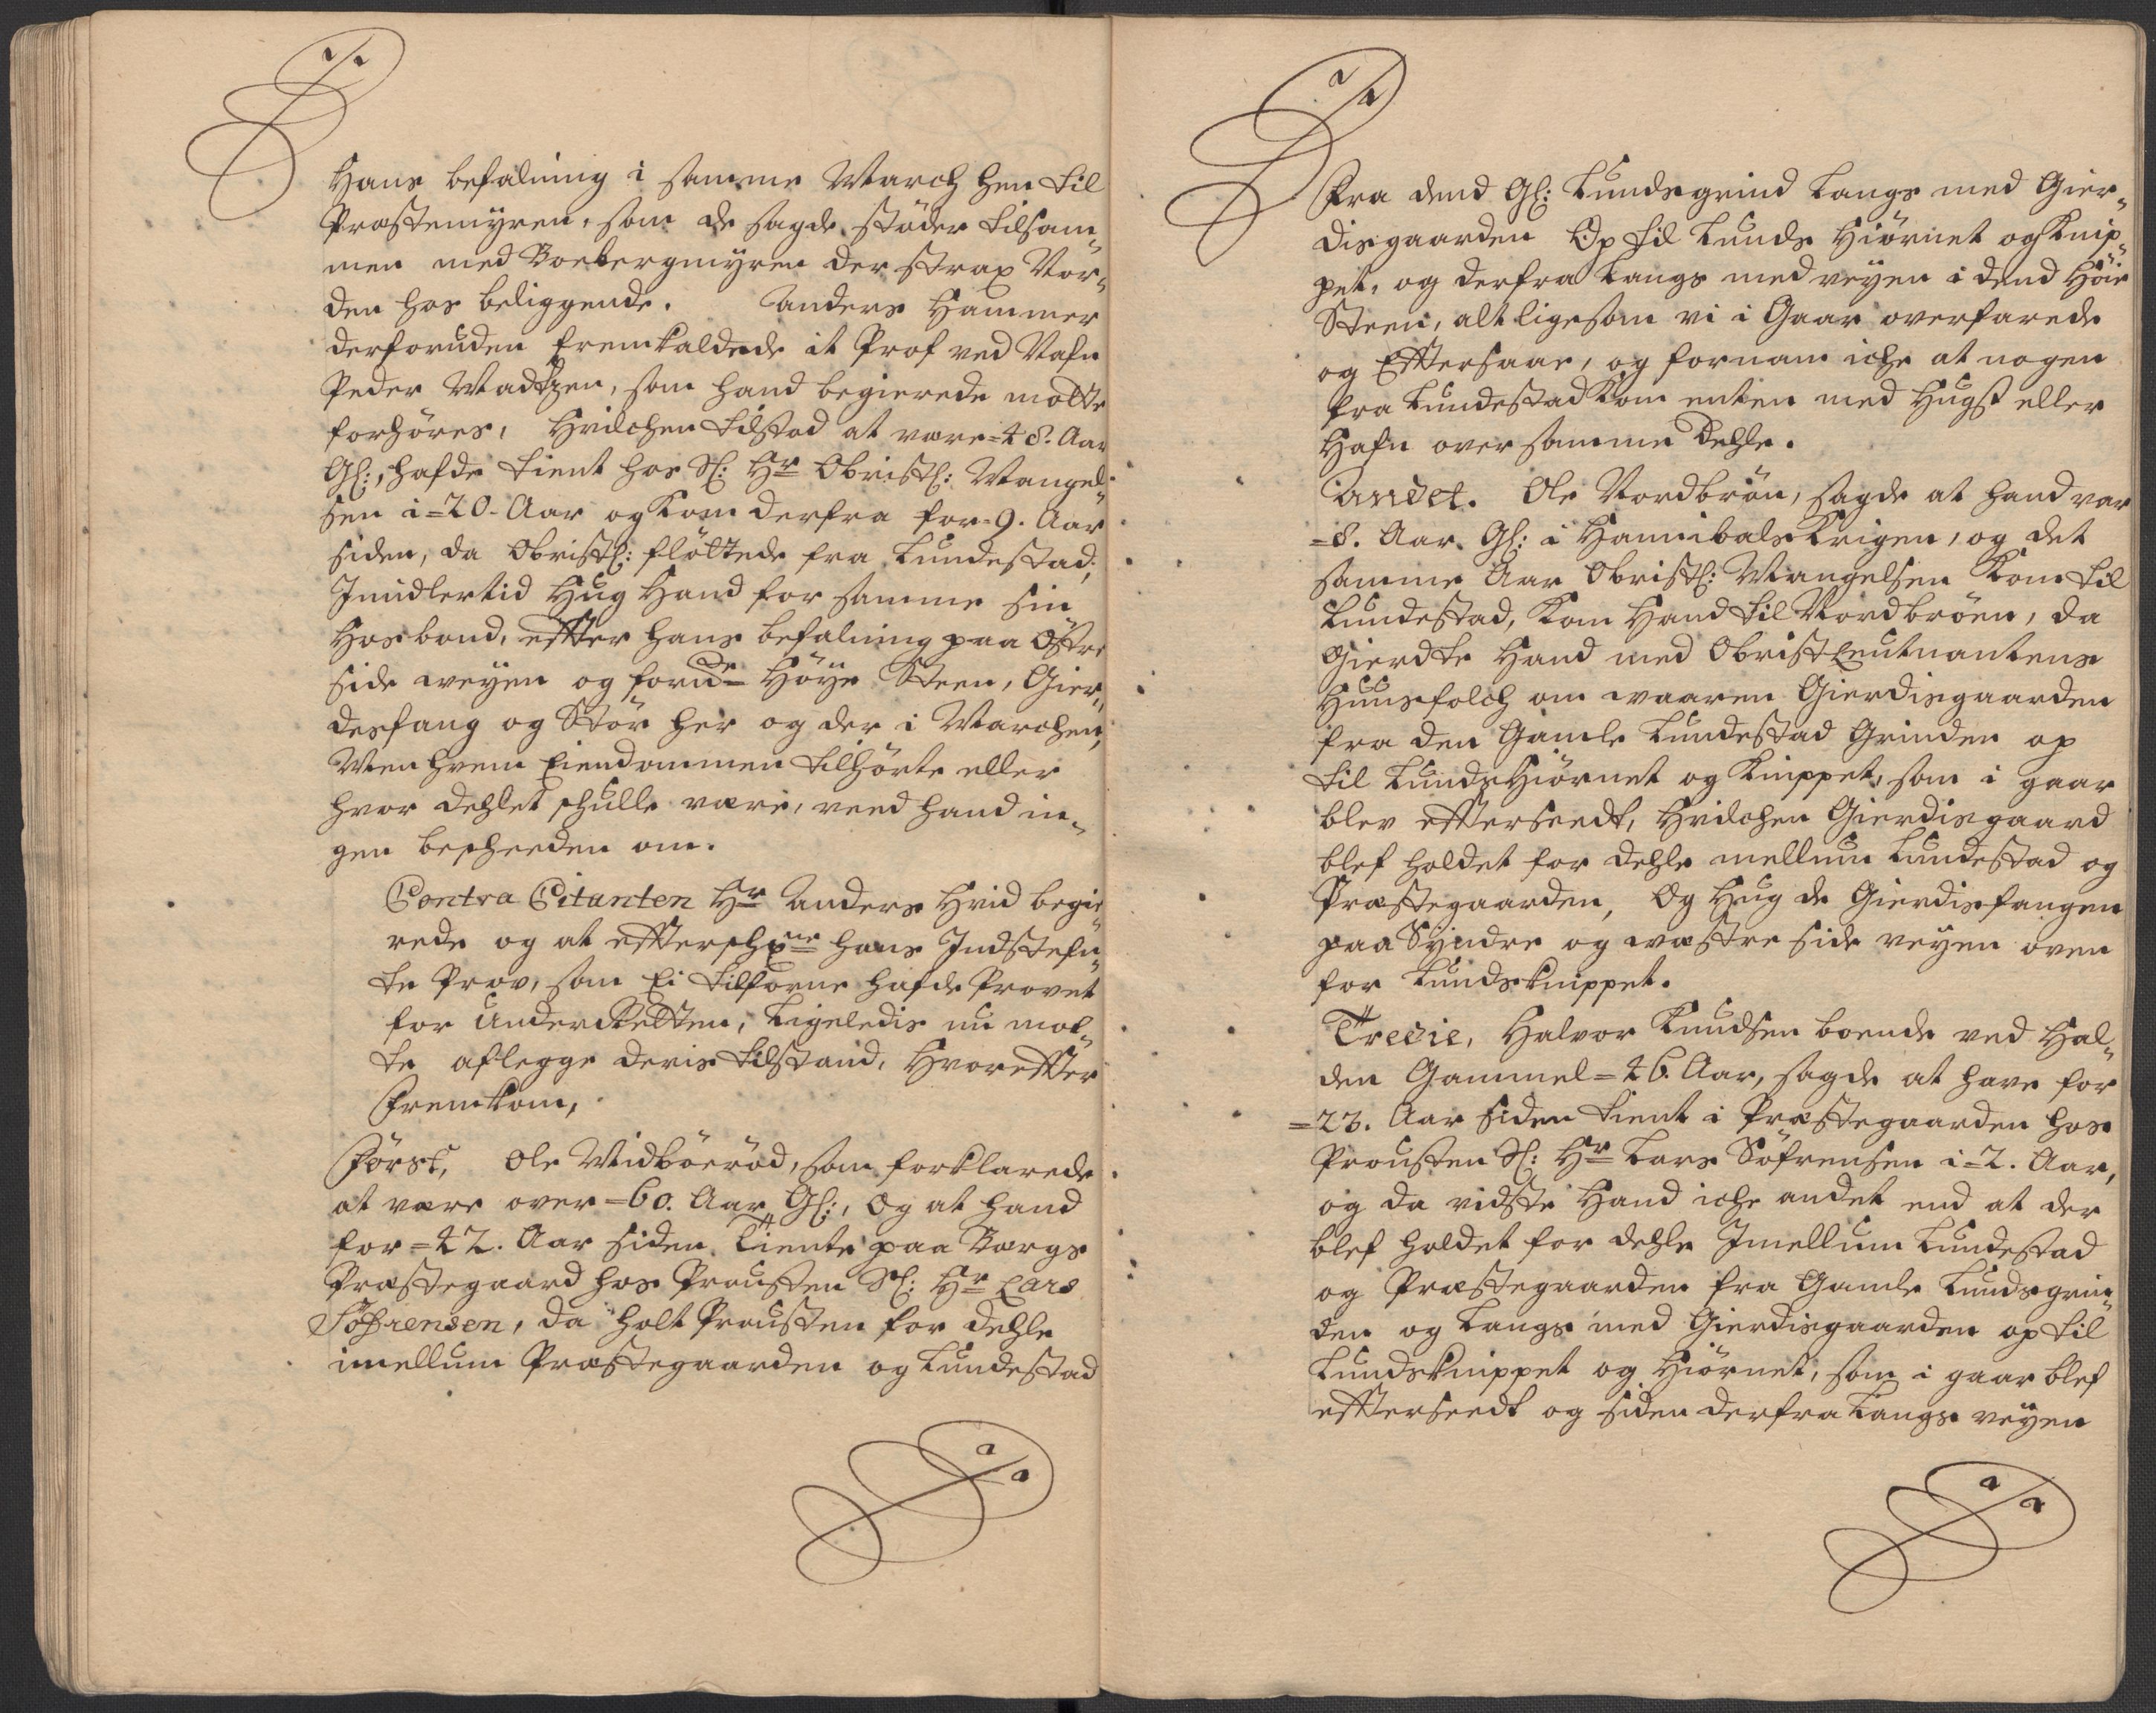 Hans befalning i samme March hen til
Præstemyren, som de sagde støder tilsam„
men med Borbergmyren der strax Nor„
den hos beliggende. Anders Hammer
derforuden fremkaldede it Prof ved Nafn
Peder Madtzen, som hand begierede motte
forhöres, Hvilchen tilstod at være=48. Aar
Gl:, hafde tient hos Sl: Hr Obristl: Mangel„
sen i=20. Aar og Kom derfra for=9. Aar
siden, da Obristl: flöttede fra Lundestad,
Imidlertid Hug Hand for samme sin
Hosbond, effter hans befalning paa Östre
side weyen og forndte Höye Steen, Gier„
desfang og Stör her og der i Marchen,
Men hvem Eiendommen tilhörte eller
hvor dehlet schulle være, veed hand in„
gen bescheeden om.
Contra Citanten Hr Anders Hvid begie„
rede og at effterschrne hans Indstefn„
te Prov, som Ei tilforne hafde Provet
for UnderRetten, Ligeledis nu mot„
te aflegge deris tilstand, Hvoreffter
Fremkom,
Först, Ole Midböeröd, som forklarede
at være over=60. Aar Gl:, Og at hand
for=42. Aar siden Tiente paa Borgs
Præstegaard hos Prousten Sl: Hr Lars
Söfrensen, da holt Prousten for dehle
imellum Præstegaarden og Lundestad
Fra dend Gl: Lundsgrind Langs med Gier„
disgaarden Op til Lunds Hiörnet og Knip„
pet, og derfra Langs med veyen i dend Höie
Steen, alt ligesom vi i Gaar overfarede
og Efftersaae, og fornam iche at nogen
fra Lundestad Kom enten med Hugst eller
Hafn over samme Dehle.
Andet. Ole Nordbrön, sagde at hand var
=8. Aar Gl: i Hannibals Krigen, og det
samme Aar Obristl: Mangelsen Kom til
Lundestad, Kom Hand til Nordbröen, da
Gierdte Hand med Obristleutnantens
Huusfolch om waaren Gierdisgaarden
fra den Gamle Lundestad Grinden op
til LundsHiörnet og Knippet, som i gaar
blev effterseedt, Hvilchen Gierdisgaard
blef holdet for dehle mellum Lundestad og
Præstegaarden, Og Hug de Gierdisfangen
paa Syndre og wæstre side veyen oven
for Lundsknippet.
Tredie, Halvor Knudsen boende ved Hal„
den Gammel=46. Aar, sagde at have for
=23. Aar siden tient i Præstegaarden hos
Prousten Sl: Hr Lars Söfrensen i=2. Aar,
og da vidste Hand iche andet end at der
blef holdet for dehle Imellum Lundestad
og Præstegaarden fra Gamle Lundsgrin„
den og Langs med Gierdisgaarden op til
Lundsknippet og Hiörnet, som i gaar blef
effterseedt og siden derfra Langs veyen